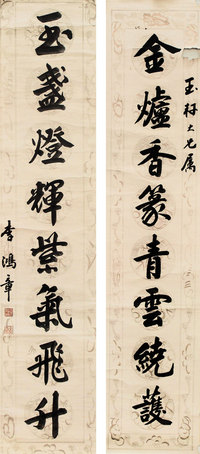 玉研大兄属
金爐香篆青雲繞護
玉盞燈輝紫氣飛升
李鴻章